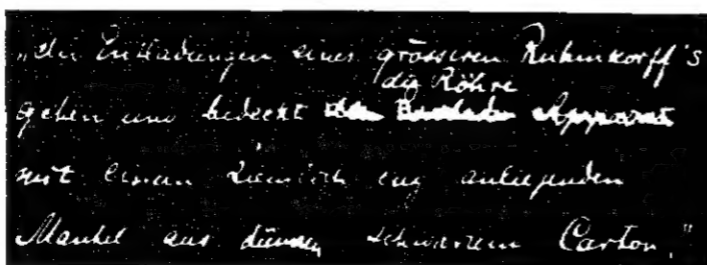 „die Entladungen eines grösseren Ruhmkorff's
die Röhre
gehen und bedeckt den Apparat
mit einem ziemlich eng anliegenden
Mantel aus dünnem schwarzem Carton,"